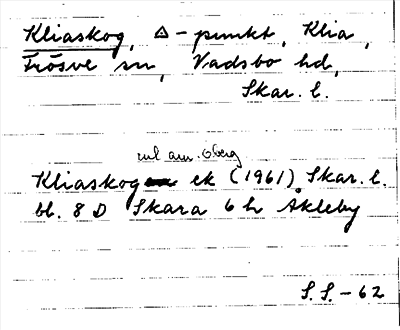 Kliaskog, △-punkt, Klia,
Frösve sn, Vadsbo hd,
Skar. l.
enl anv. Oberg
Kliaskog ek (1961) Skar. l.
bl. 8 D Skara 6 h Åkleby
S.S.-62